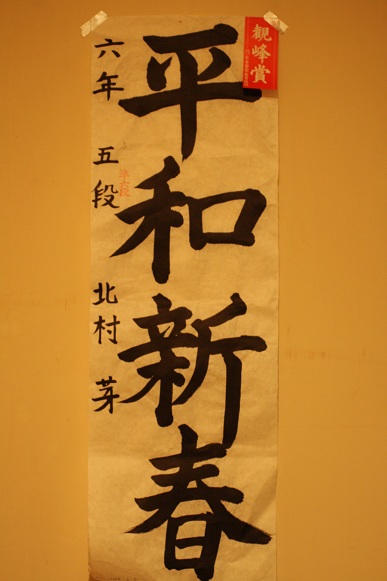 平和新春
六年 五段 北村 芽
観峰賞